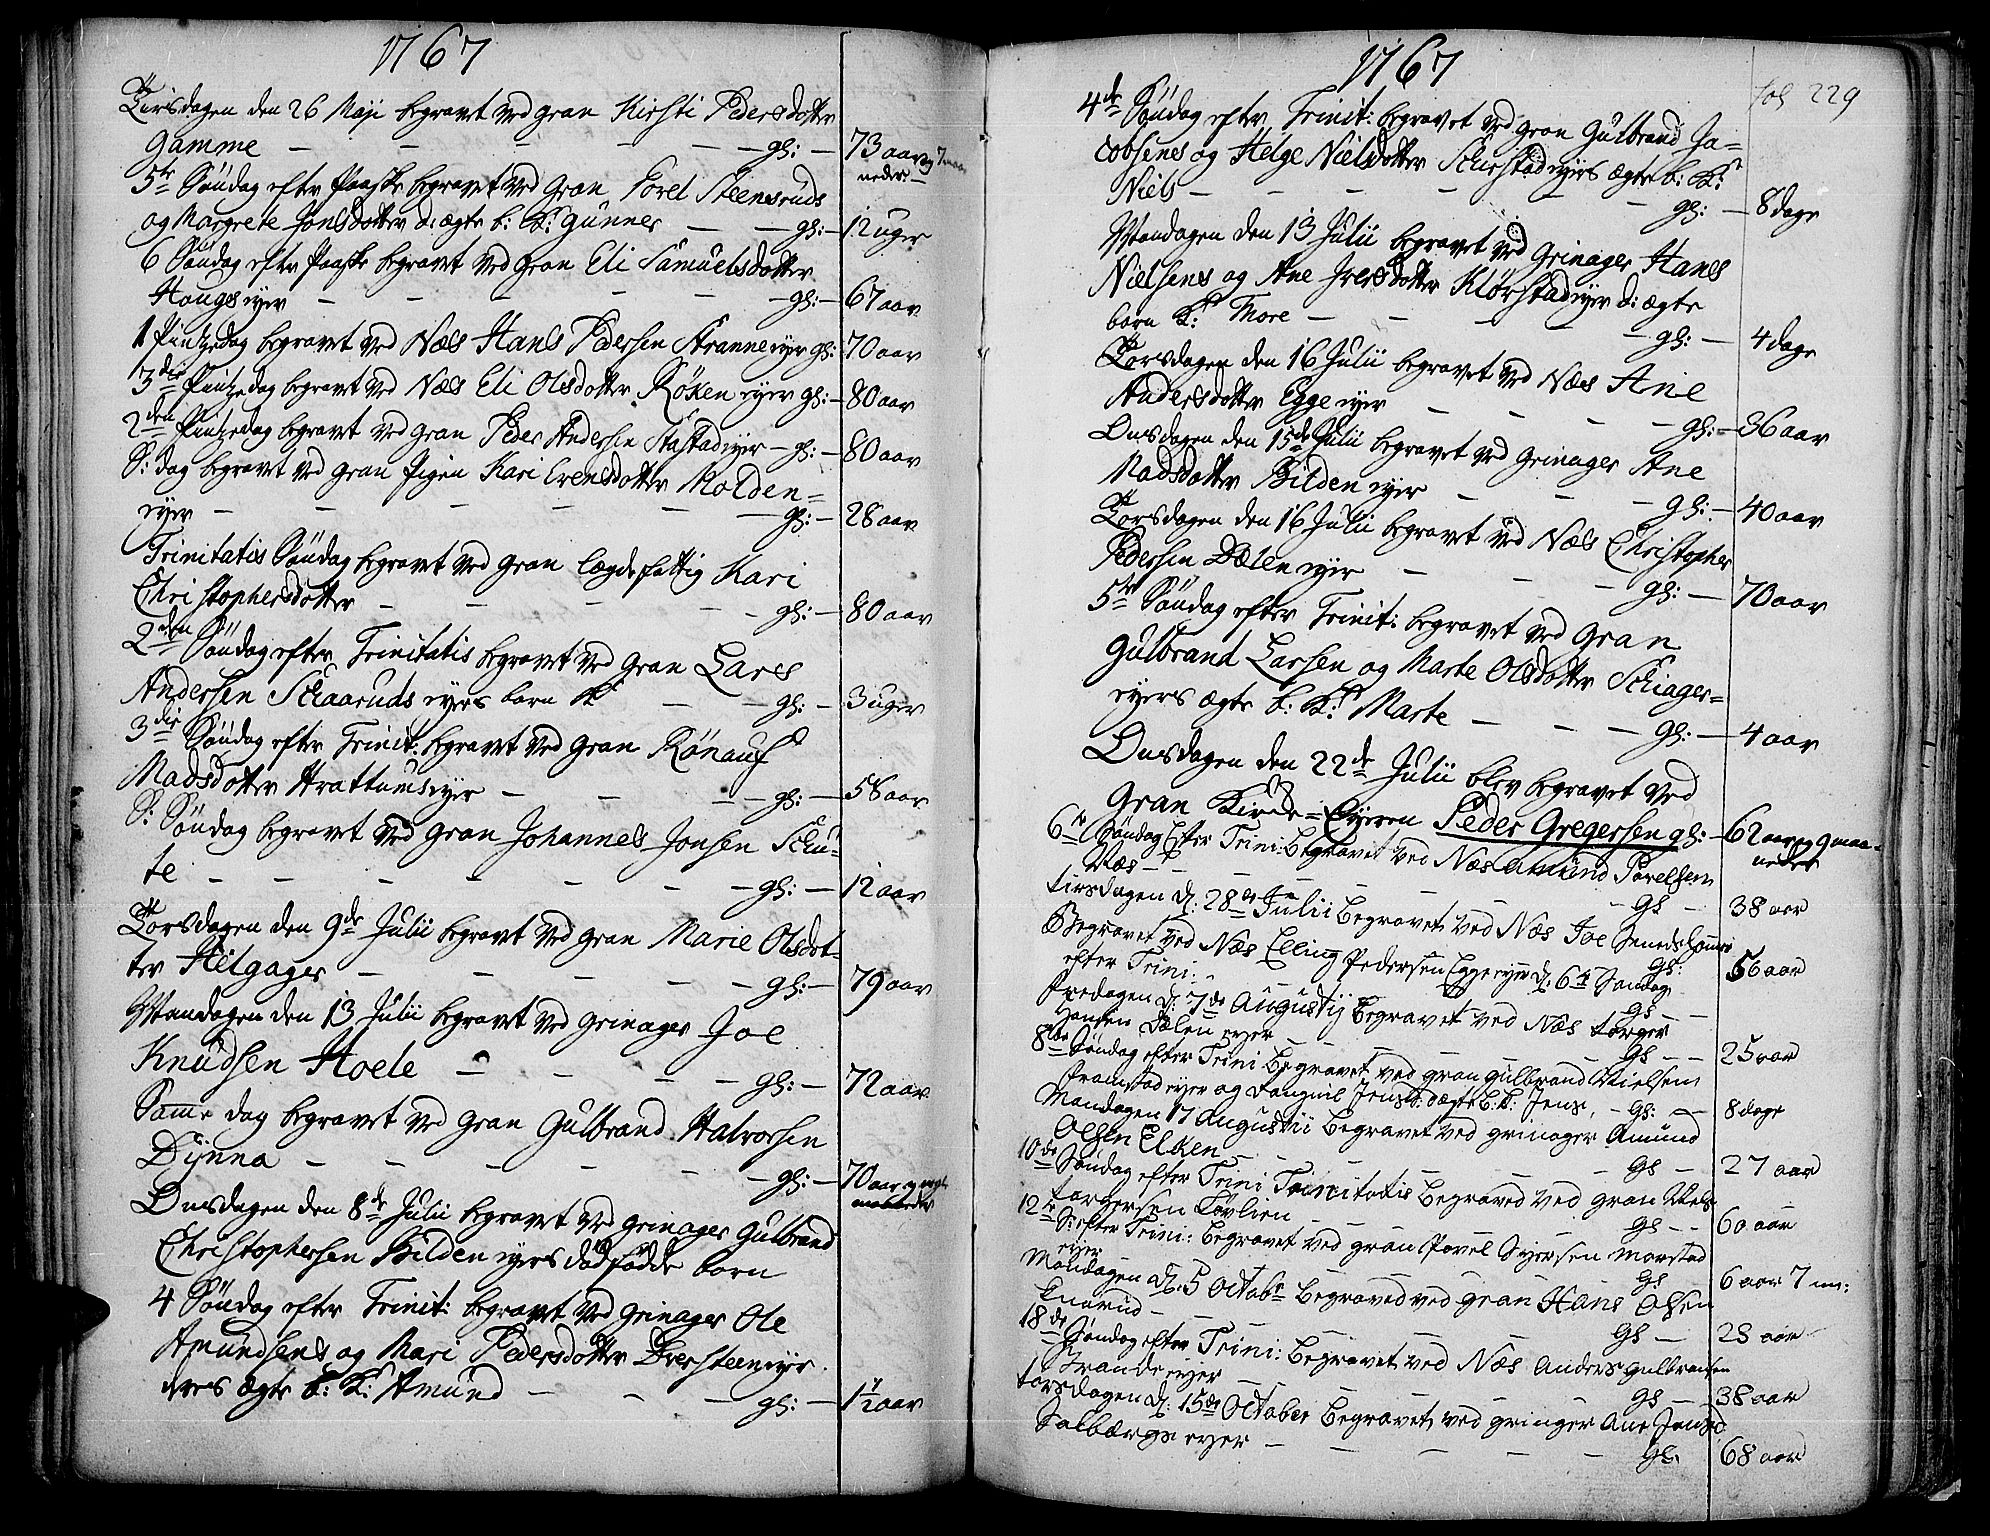 1767
Tirsdagen den 26 Maji begravt ved Gran Kirsti Pedersdotter
Gamme — — — — — — gl: — 73 aar og 7 maa
neder —
5te Søndag efter Paaske begravt ved Gran Torel Steensruds
og Margrete Jonsdotter d: ægte b: K: Gunner — — gl: — 12 uger
6 Søndag efter Paaske begravt ved Gran Eli Samuelsdotter
Hougs eyer — — — — — — gl: — 67 aar
1 Pintzedag begravt ved Næs Hans Pedersen Stranne eyer gl: 70 aar
3die Pintzedag begravt ved Næs Eli Olsdotter Røken eyer gl: — 80 aar
2den Pintzedag begravt ved Gran Peder Andersen Stastad eyer — gl: — 80 aar
S: dag begravt ved Gran Pigen Kari Evensdotter Molden=
eyer — — — — — — gl: — 28 aar
Trinitatis Søndag begravt ved Gran lægds fattig Kari
Christophersdotter — — — — — gl: — 80 aar
2den Søndag efter Trinitatis begravt ved Gran Lars
Andersen Schaaruds eyers barn — — gl: — 3 uger
3die Søndag efter Trinit: begravt ved Gran Rønauf
Madsdotter Hrattums eyer — — — — gl: — 58 aar
S: Søndag begravt ved Gran Johannes Jonsen Schu=
te — — — — — — — gl: — 12 aar
Torsdagen den 9de Julii begravt ved Gran Marie Olsdot=
ter Helgager — — — — — gl: — 79 aar
Mandagen den 13 Julii begravt ved Grinager Joe
Knudsen Hoele — — — — — gl: — 72 aar
Samme dag begravt ved Gran Gulbrand Halvorsen
Dynna — — — — — — gl: — 70 aar
Onsdagen den 8de Julii begravt ved Grinager Gulbrand
Christophersen Bilden eyers dødfødde barn
4 Søndag efter Trinit: begravt ved Grinager Ole
Amundsens og Mari Pedersdotter Dversteen eyer
deres ægte b: K: Amund — — — gl: — 1½ aar
1767
fol 229
4de Søndag efter Trinit: begravet ved Gran Gulbrand Ja=
cobsens og Helge Nielsdotter Schirstad eyers ægte b: K:
Niels — — — — — — gl: — 8 dage
Mandagen den 13 Julii begravet ved Grinager Hans
Nielsens og Ane Iversdotter Klørstad eyer d: ægte
barn K: Thore — — — — — gl: — 4 dage
Torsdagen den 16 Julii begravet ved Næs Ane
Andersdotter Egge eyer — — — — gl: — 36 aar
Onsdagen den 15de Julii begravet ved Grinager Ane
Madsdotter Bilden eyer — — — gl: — 40 aar
Torsdagen den 16 Julii begravet ved Næs Christopher
Pedersen Dælen eyer — — — gl: — 70 aar
5te Søndag efter Trinit: begravet ved Gran
Gulbrand Larsen og Marte Olsdotter Schiager=
eyers ægte b: K: Marte — — — gl: — 4 aar
Onsdagen den 22de Julii blev begravet ved
Gran Kirche = Eyeren Peder Gregersen gl: — 62 aar og 9 maa=
neder
6te Søndag Efter Trini: Begravet ved Næs Amund Povelsen
Næs — — — — — gl — 38 aar
tirsdagen d: 28de Julii Begravet ved Næs Joe
gl: 56 aar
Begravet ved Næs Elling Pedersen Egge eyer d: 6te Søndag
efter Trini: — — — gl —
Fredagen d: 7de Augustij Begravet ved Næs Torger
Hansen Dælen eyer — — — gl — — 25 aar
8de Søndag efter Trini Begravet ved Gran Gulbrand Nielsens
Framstad eyer og Dangnil Jensd: ægte b: K: Jens, — gl: — 8 dage
Mandagen 17 Augustii Begravet ved Grinager Amund
Olsen Elken — — — — gl — 27 aar
10de Søndag efter Trini Trinitatis Begraved ved Gran Niels
Torgersen Løvlien — — — gl — — 60 aar
12te S: efter Trini: Begravet ved Gran Povel Syversen Morstad
eyer — — — — gl — 6 aar 7 m:
Mandagen d: 5 Octobr Begraved ved Gran Hans Olsen
Knarud — — — — gl — 28 aar
18de Søndag efter Trini: Begravet ved Næs Anders Gulbransen
Brande eyer — — — — gl — 38 aar
torsdagen d: 15de October Begravet ved Gringer Ane Jensd
Solbergs eyer — — — — gl: 68 aar